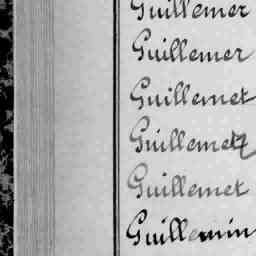 Guillemer
Guillemer
Guillemet
Guillemetz
Guillemet
Guillemin